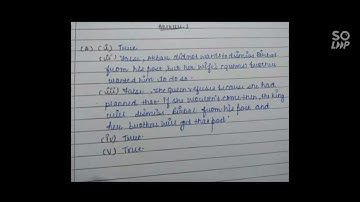 SO
LMP
(A) (i) True
(ii) False, Akbar did not want to dismiss Birbal
from his post but her wife's queens brother
wanted him to do so.
(iii) False, the Queen refuses because she had
planned that if she wouldn't come then, the king
will dismiss Birbal from his post and
her brother will get that post.
(iv) True
(v) True